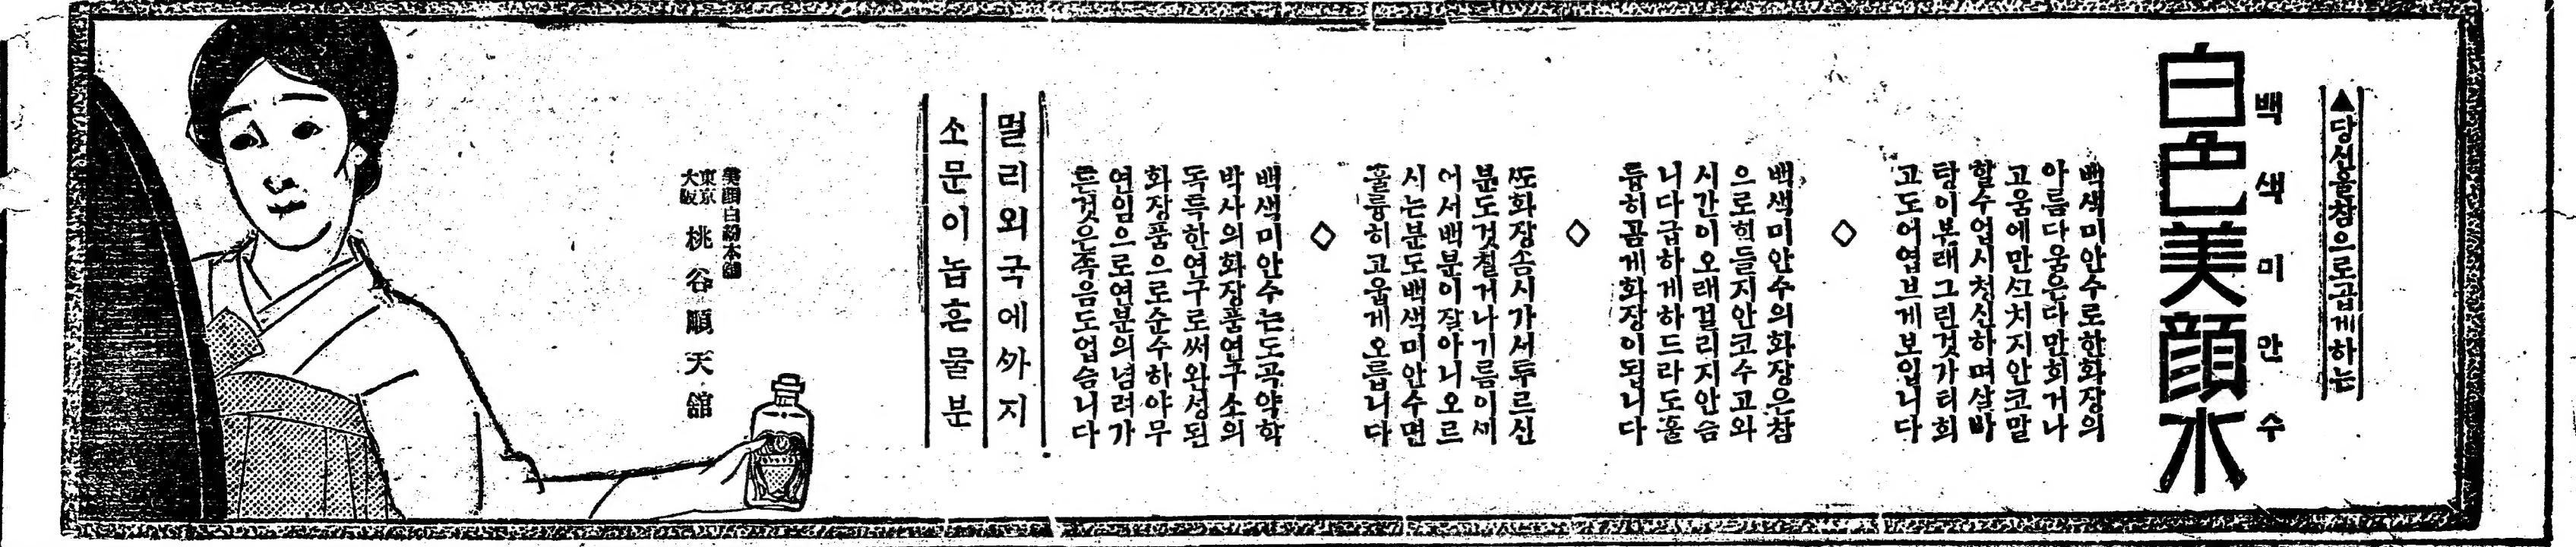 ▲당선을참으로곱게하는
백색미안수
白色美顔水
백색미안수로한화장의
아름다움은다만희거나
고움에만씃치지안코말
할수업시청신하며살바
탕이본래그런것가티희
고도어엽브게보입니다
◇
백색미안수의화장은참
으로힘들지안코수고와
시간이오래걸리지안슴
니다급하게하드라도훌
륭히곱게화장이됩니다
◇
또화장솜시가서투르신
분도것칠거나기름이세
어서백분이잘아니오르
시는분도백색미안수면
훌륭히고웁게오릅니다
◇
백색미안수는도곡약학
박사의화장품연구소의
독특한연구로써완성된
화장품으로순수하야무
연임으로연분의념려가
튼것은족음도업슴니다
멀리외국에까지
소문이놉흔물분
美顔白粉本舖
東京
大阪
桃谷順天館